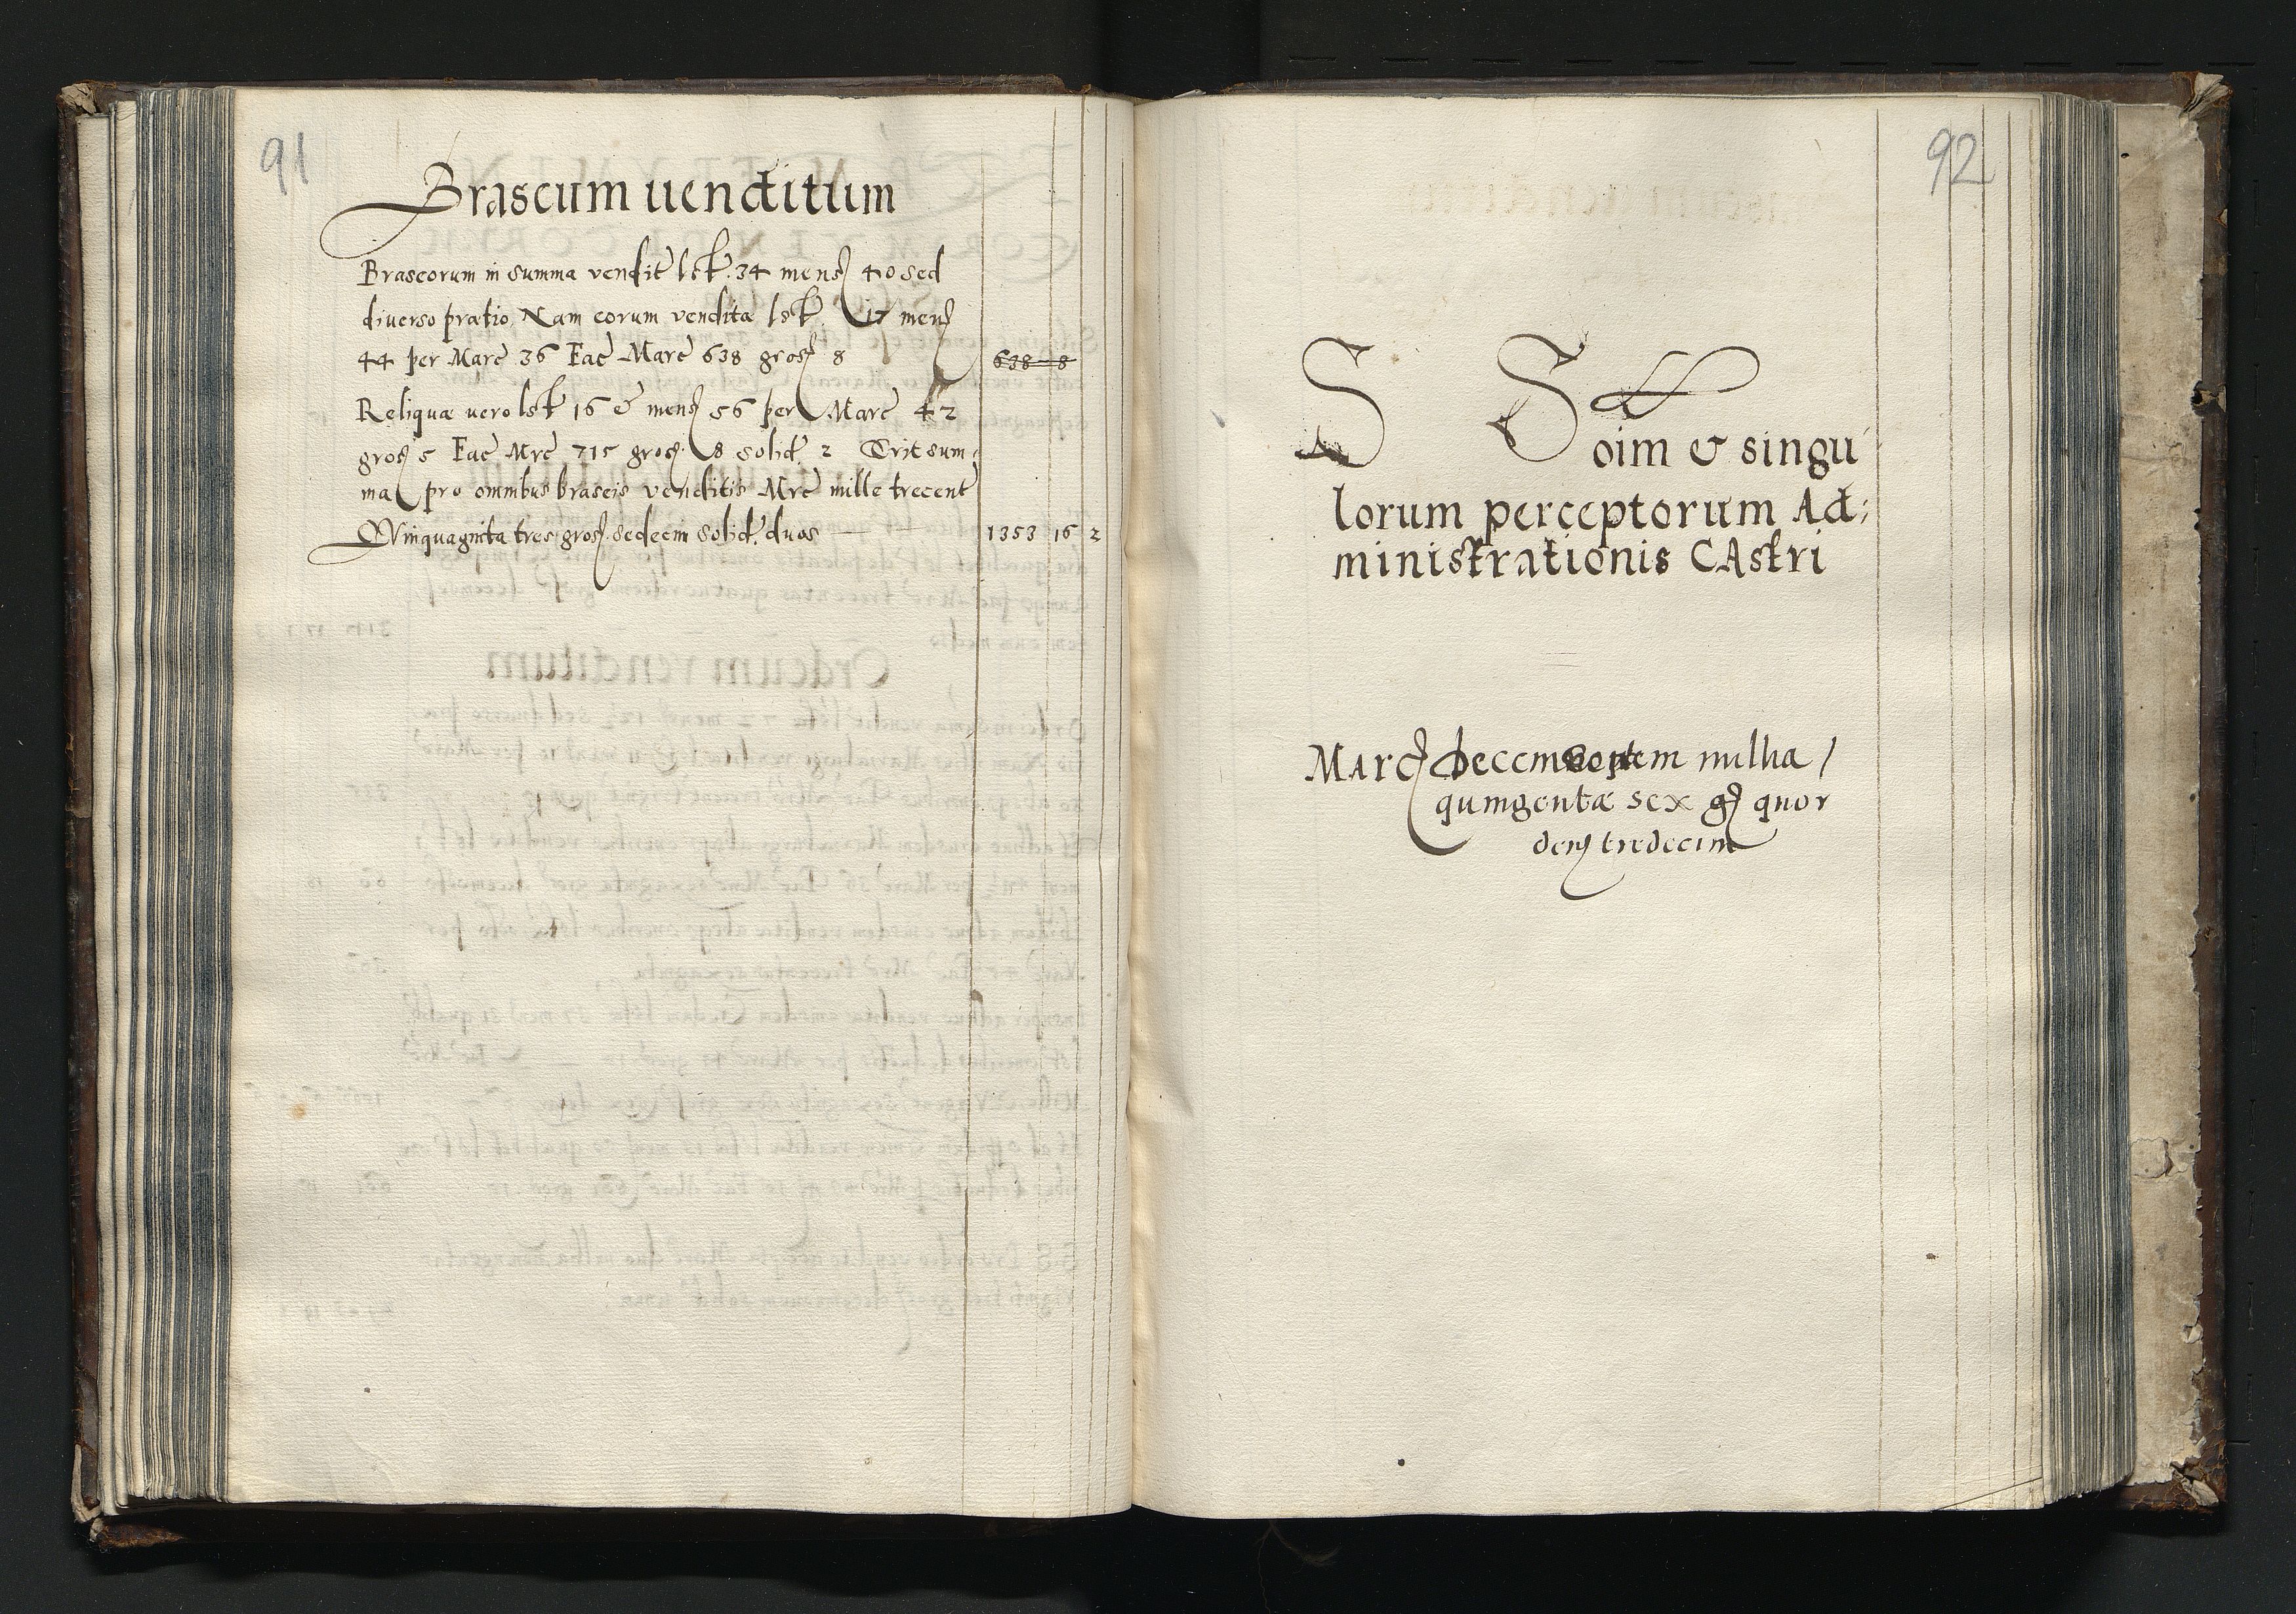 91
Brascum uenditum
Braseorum in summa vendit lst. 34 mens 40 sed
diuerso prætio. Nam eorum vendita lst. 17 mens
44 per Marc 36 Fac Marc 638 gros 8 638 8
Reliquæ uero lst 16 & mens 56 per Marc 42
gros 5 Fac Mrc 715 gros. 8 solid. 2 Erit sum:
ma pro omnibus braseis venditis Mrc mille trecent
Quinquaginta tres gros. sedecim solid. duos 1353 16 2
92
S S
oim & singu
lorum perceptorum Ad:
ministrationis CAstri
Marc decem septem millia /
quingentæ sex g quor
den tredecim